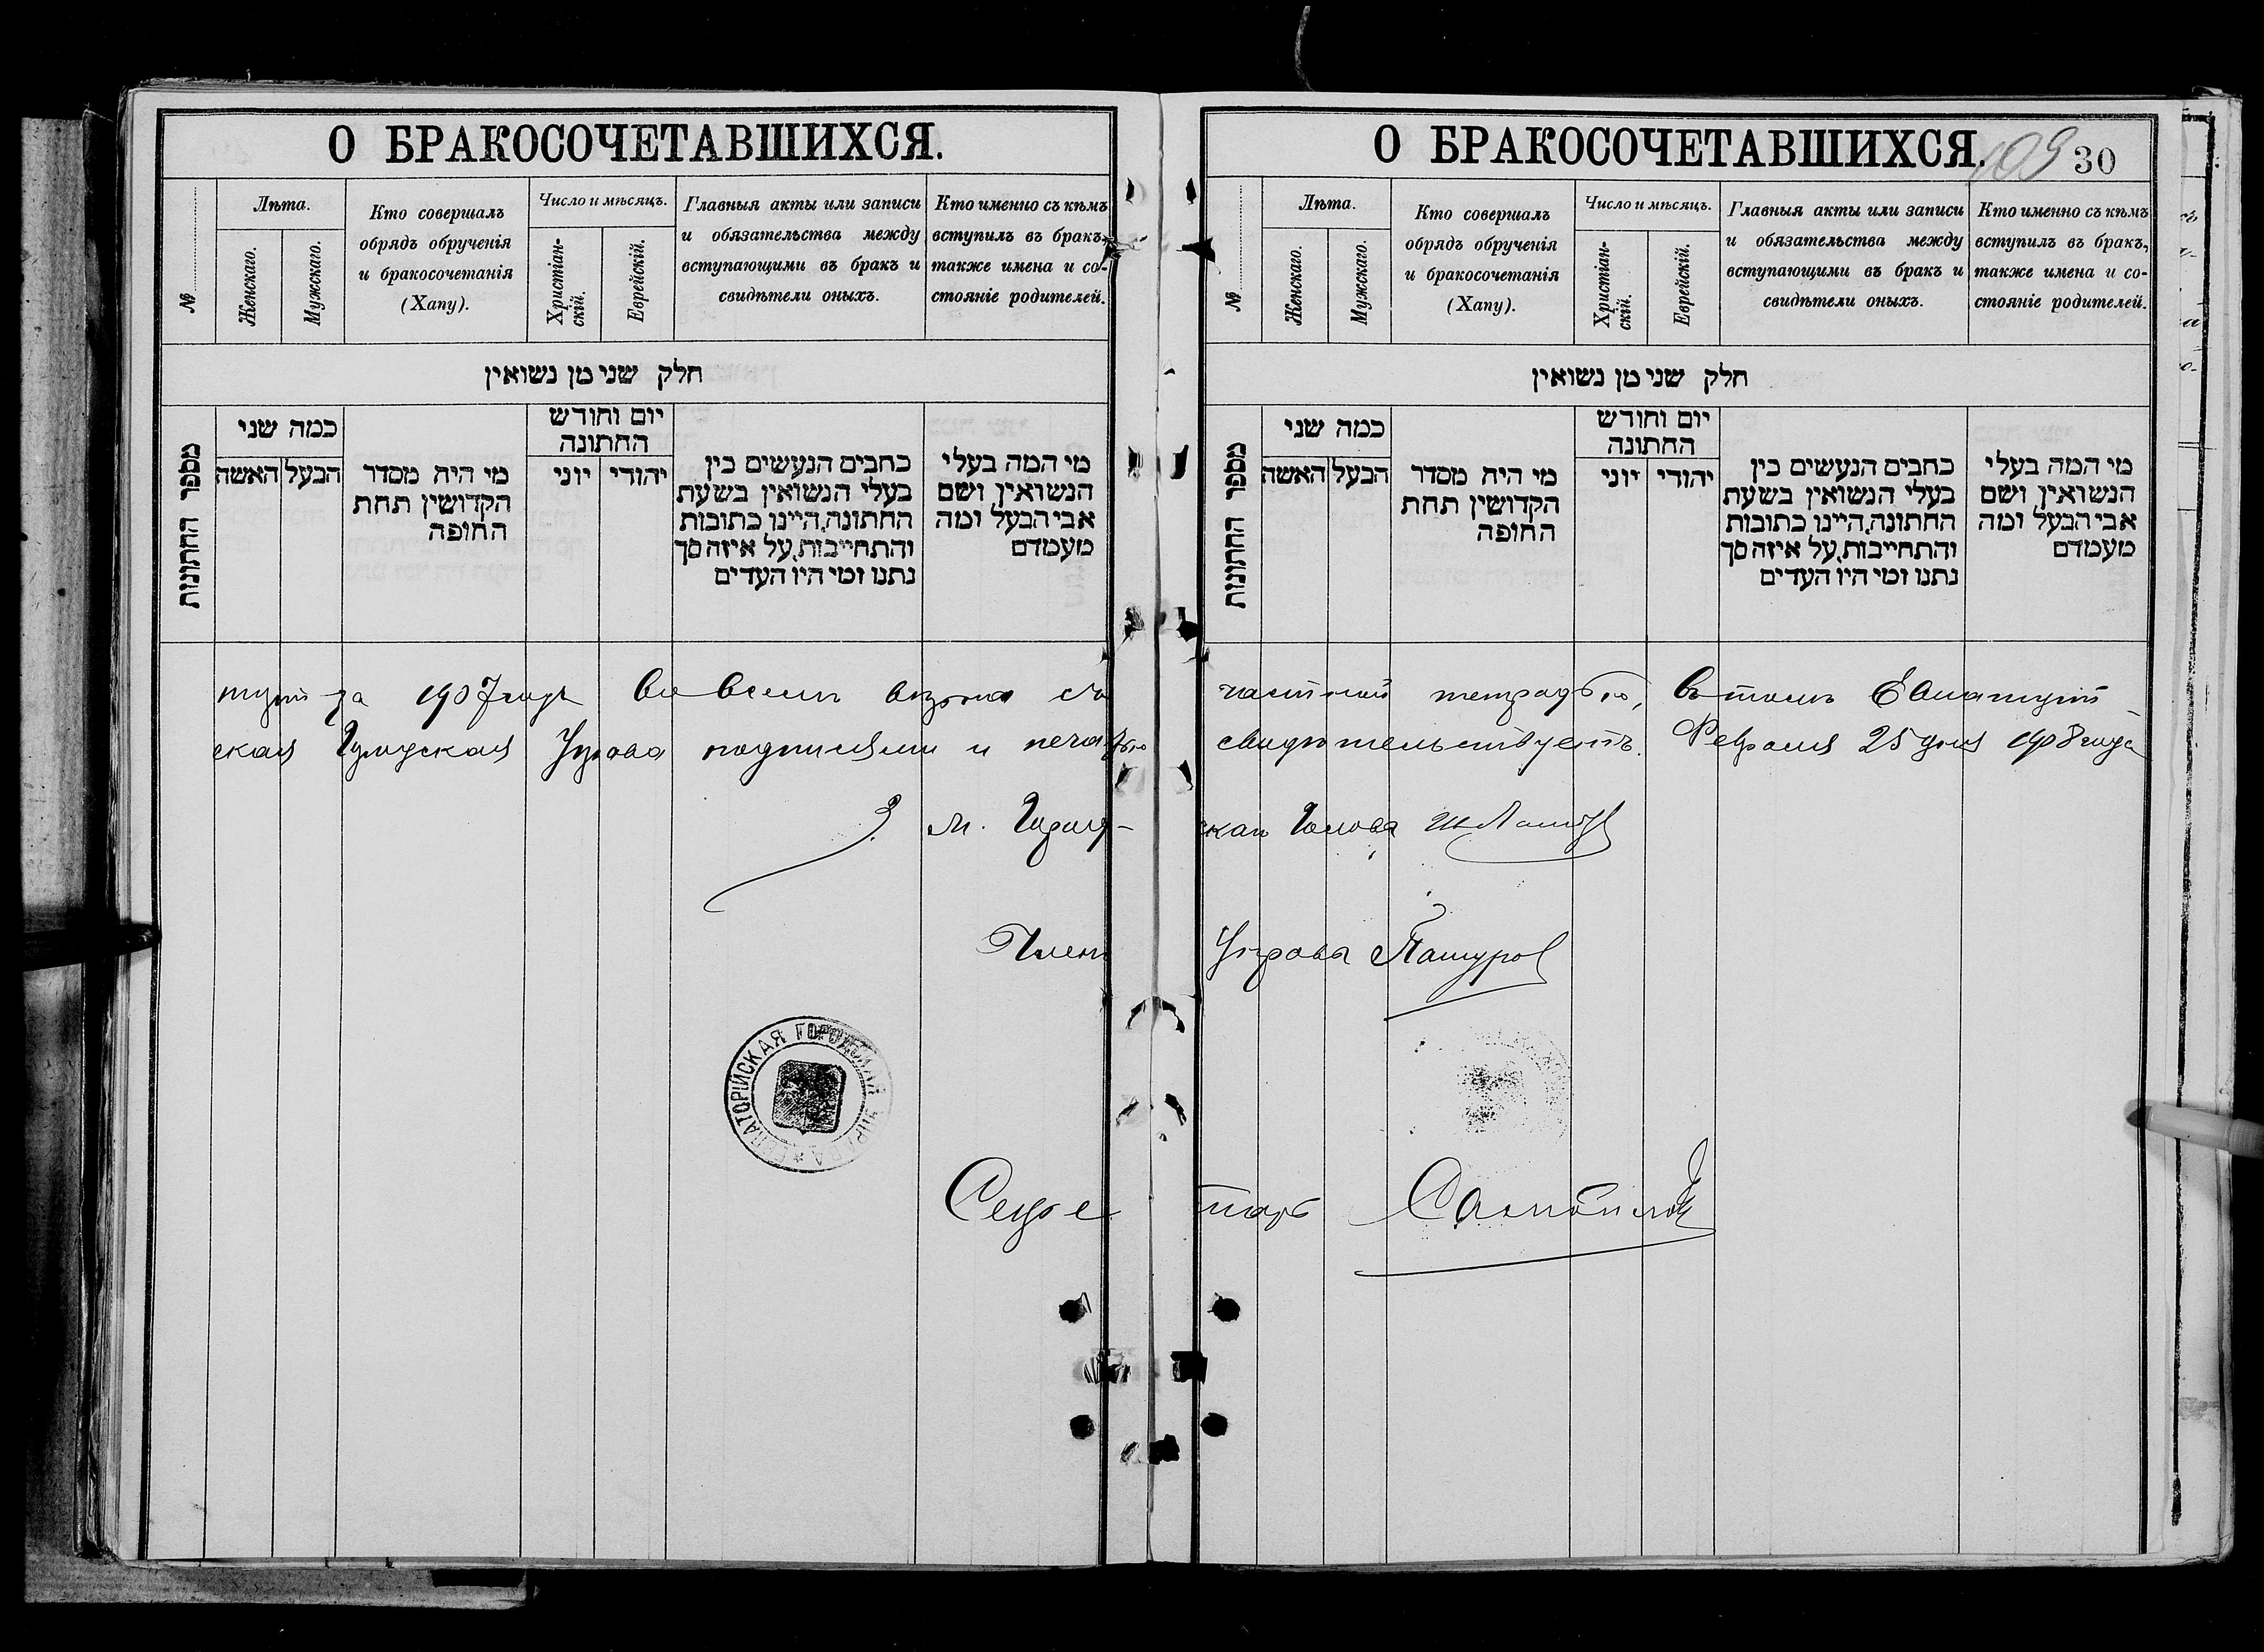 О БРАКОСОЧЕТАВШИХСЯ.
№
Лѣта.
Женскаго.
Мужскаго.
Кто совершалъ
обрядъ обрученія
и бракосочетанія
(Хапу).
Число и мѣсяцъ.
Христіан-
скій.
Еврейскій.
Главныя акты или записи
и обязательства между
вступающими въ бракъ и
свидѣтели оныхъ.
Кто именно съ кѣмъ
вступилъ въ бракъ,
также имена и со-
стояніе родителей.
חלק שני מן נשואין
מספר החתונות
כמה שני
האשה
הבעל
מי היה מסדר
הקדושין תחת
החופה
יום וחודש
החתונה
יוני
יהודי
כתבים הנעשים בין
בעלי הנשואין בשעת
החתונה, היינו כתובות
והתחייבות, על איזה סך
נתנו ומי היו העדים
מי המה בעלי
הנשואין, ושם
אבי הבעל ומה
מעמדם
О БРАКОСОЧЕТАВШИХСЯ.
109
30
№
Лѣта.
Женскаго.
Мужскаго.
Кто совершалъ
обрядъ обрученія
и бракосочетанія
(Хапу).
Число и мѣсяцъ.
Христіан-
скій.
Еврейскій.
Главныя акты или записи
и обязательства между
вступающими въ бракъ и
свидѣтели оныхъ.
Кто именно съ кѣмъ
вступилъ въ бракъ,
также имена и со-
стояніе родителей.
חלק שני מן נשואין
מספר החתונות
כמה שני
האשה
הבעל
מי היה מסדר
הקדושין תחת
החופה
יום וחודש
החתונה
יוני
יהודי
כתבים הנעשים בין
בעלי הנשואין בשעת
החתונה, היינו כתובות
והתחייבות, על איזה סך
נתנו ומי היו העדים
מי המה בעלי
הנשואין, ושם
אבי הבעל ומה
מעמדם
за 1907 годъ во всемъ сходна съ частной тетрадью, въ томъ Евпаторій-
ская Городская Управа подписями и печатью свидѣтельствуетъ. Февраля 25 дня 1908 года
З. м. Городскаго Головы
Членъ Управы
ЕВПАТОРІЙСКАЯ ГОРОДСКАЯ УПРАВА
Секретарь